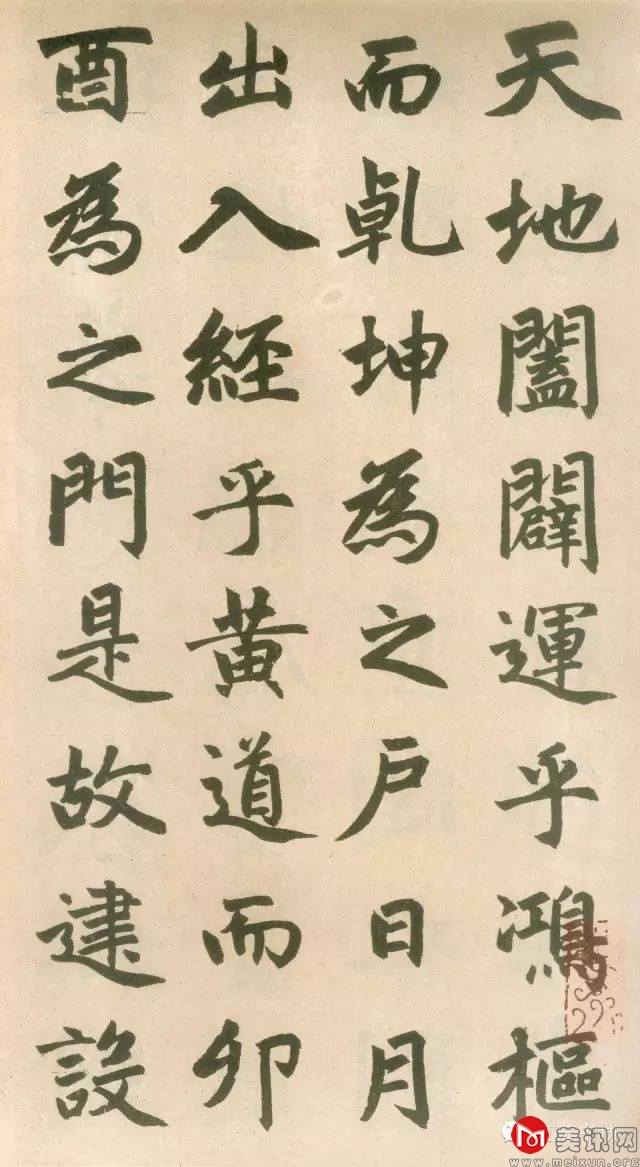 天地闔闢運乎鴻樞
而乹坤為之户日月
出入經乎黃道而卯
酉為之門是故建設
美讯网
www.meixun.org